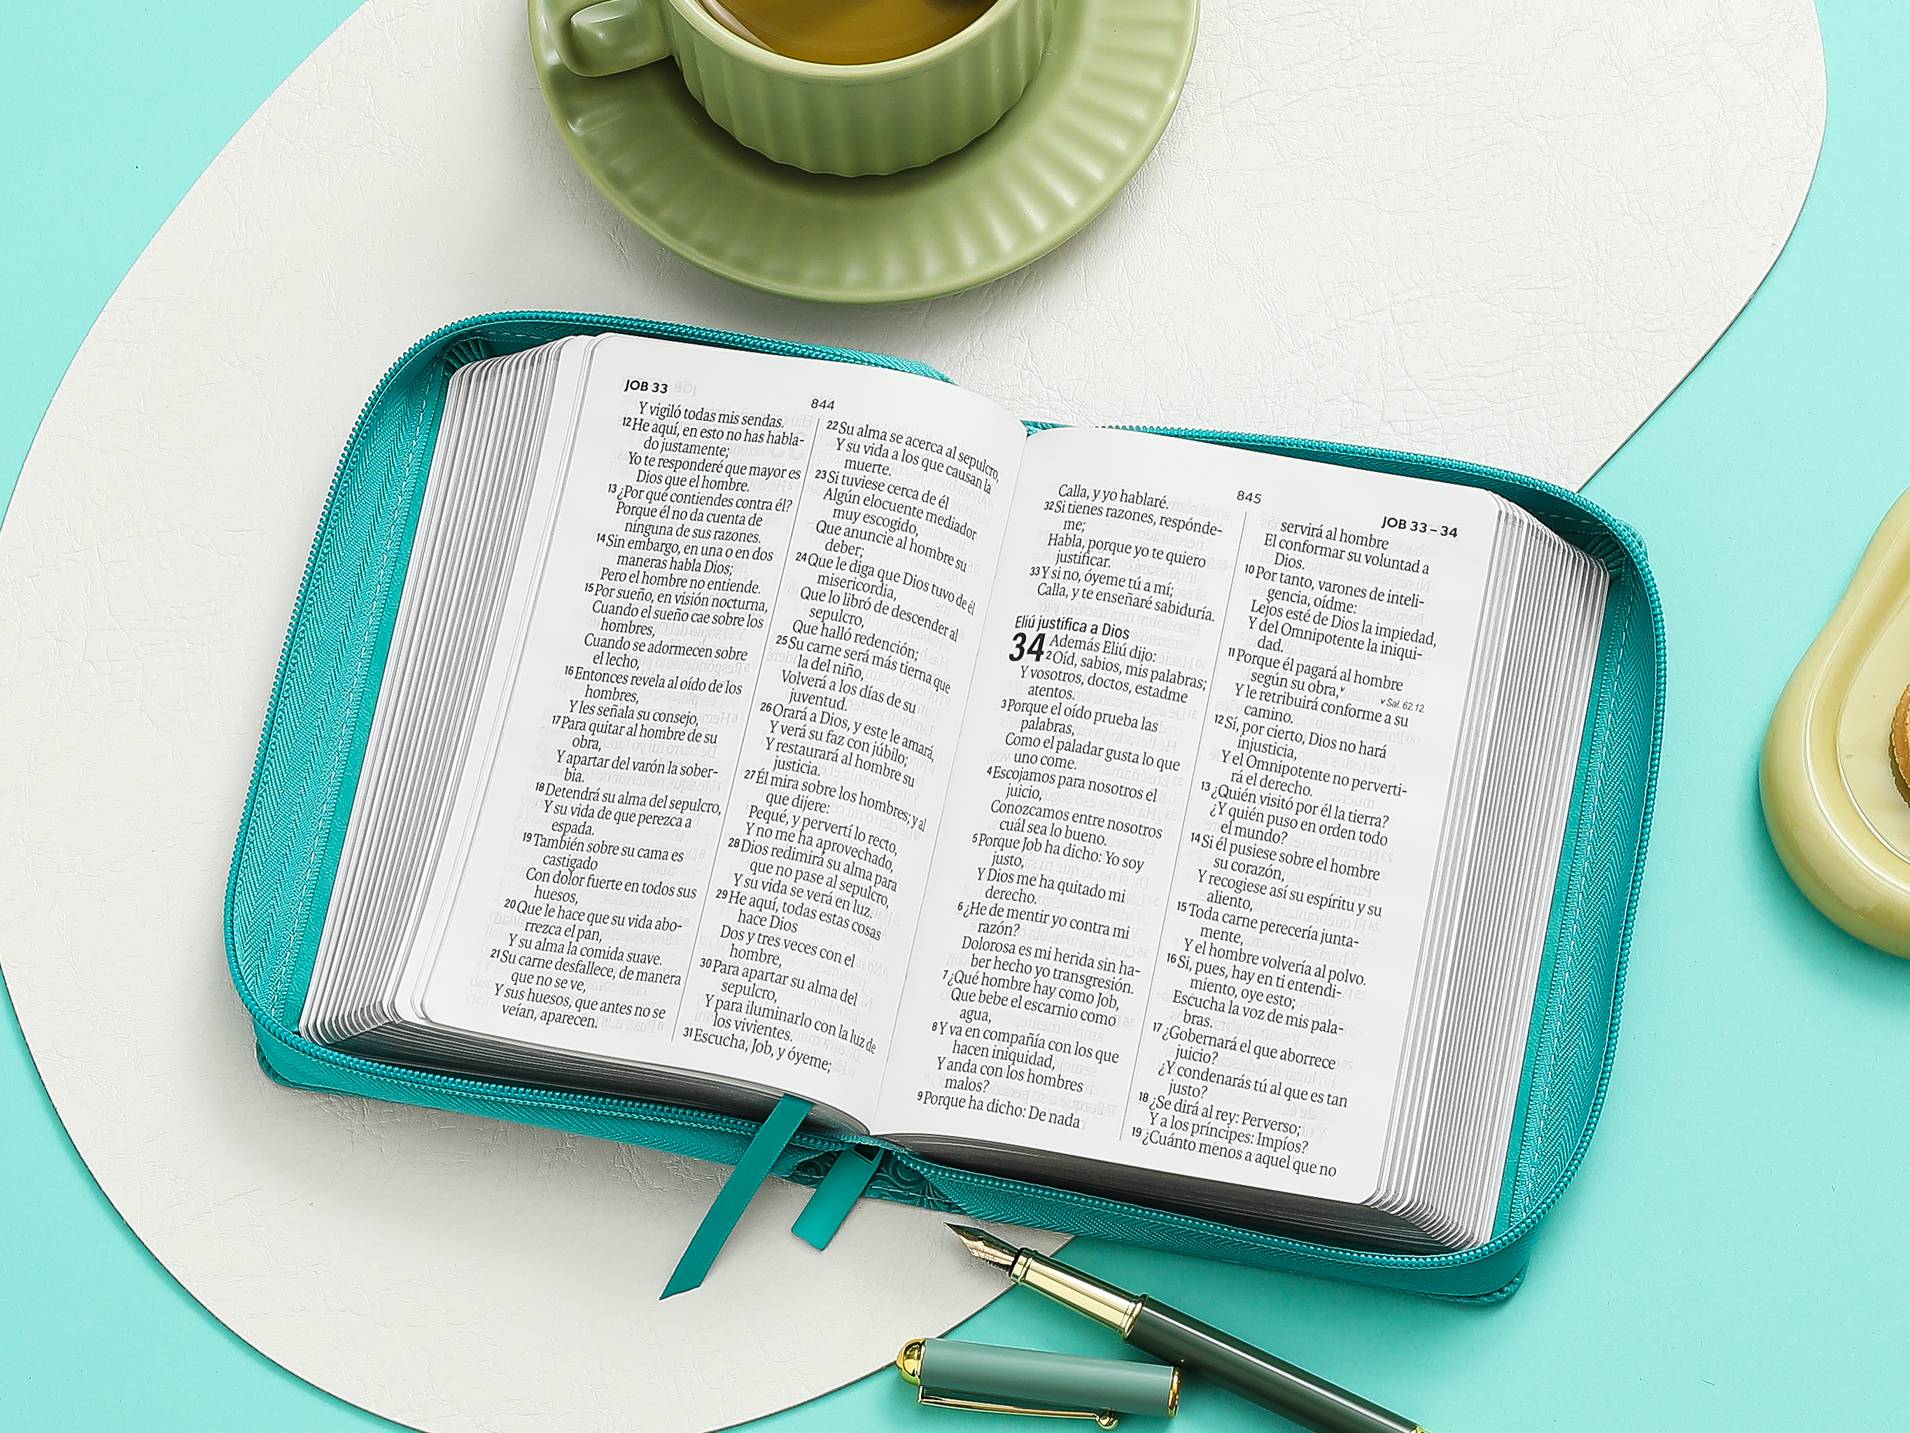 JOB 33
844
Y vigiló todas mis sendas.
12 He aquí, en esto no has habla-
do justamente;
Yo te responderé que mayor es
Dios que el hombre.
13 ¿Por qué contiendes contra él?
Porque él no da cuenta de
ninguna de sus razones.
14 Sin embargo, en una o en dos
maneras habla Dios;
Pero el hombre no entiende.
15 Por sueño, en visión nocturna,
Cuando el sueño cae sobre los
hombres,
Cuando se adormecen sobre
el lecho,
16 Entonces revela al oído de los
hombres,
Y les señala su consejo,
17 Para quitar al hombre de su
obra,
Y apartar del varón la sober-
bia.
18 Detendrá su alma del sepulcro,
Y su vida de que perezca a
espada.
19 También sobre su cama es
castigado
Con dolor fuerte en todos sus
huesos,
20 Que le hace que su vida abo-
rrezca el pan,
Y su alma la comida suave.
21 Su carne desfallece, de manera
que no se ve,
Y sus huesos, que antes no se
veían, aparecen.
22 Su alma se acerca al sepulcro,
Y su vida a los que causan la
muerte.
23 Si tuviese cerca de él
Algún elocuente mediador
muy escogido,
Que anuncie al hombre su
deber;
24 Que le diga que Dios tuvo de él
misericordia,
Que lo libró de descender al
sepulcro,
Que halló redención;
25 Su carne será más tierna que
la del niño,
Volverá a los días de su
juventud.
26 Orará a Dios, y este le amará,
Y verá su faz con júbilo;
Y restaurará al hombre su
justicia.
27 Él mira sobre los hombres; y al
que dijere:
Pequé, y pervertí lo recto,
Y no me ha aprovechado,
28 Dios redimirá su alma para
que no pase al sepulcro,
Y su vida se verá en luz.
29 He aquí, todas estas cosas
hace Dios
Dos y tres veces con el
hombre,
30 Para apartar su alma del
sepulcro,
Y para iluminarlo con la luz de
los vivientes.
31 Escucha, Job, y óyeme;
845
JOB 33 – 34
Calla, y yo hablaré.
32 Si tienes razones, respónde-
me;
Habla, porque yo te quiero
justificar.
33 Y si no, óyeme tú a mí;
Calla, y te enseñaré sabiduría.
Eliú justifica a Dios
34 Además Eliú dijo:
2 Oíd, sabios, mis palabras;
Y vosotros, doctos, estadme
atentos.
3 Porque el oído prueba las
palabras,
Como el paladar gusta lo que
uno come.
4 Escojamos para nosotros el
juicio,
Conozcamos entre nosotros
cuál sea lo bueno.
5 Porque Job ha dicho: Yo soy
justo,
Y Dios me ha quitado mi
derecho.
6 ¿He de mentir yo contra mi
razón?
Dolorosa es mi herida sin ha-
ber hecho yo transgresión.
7 ¿Qué hombre hay como Job,
Que bebe el escarnio como
agua,
8 Y va en compañía con los que
hacen iniquidad,
Y anda con los hombres
malos?
9 Porque ha dicho: De nada
servirá al hombre
El conformar su voluntad a
Dios.
10 Por tanto, varones de inteli-
gencia, oídme:
Lejos esté de Dios la impiedad,
Y del Omnipotente la iniqui-
dad.
11 Porque él pagará al hombre
según su obra,v
v Sal. 62.12
Y le retribuirá conforme a su
camino.
12 Sí, por cierto, Dios no hará
injusticia,
Y el Omnipotente no perverti-
rá el derecho.
13 ¿Quién visitó por él la tierra?
¿Y quién puso en orden todo
el mundo?
14 Si él pusiese sobre el hombre
su corazón,
Y recogiese así su espíritu y su
aliento,
15 Toda carne perecería junta-
mente,
Y el hombre volvería al polvo.
16 Si, pues, hay en ti entendi-
miento, oye esto;
Escucha la voz de mis pala-
bras.
17 ¿Gobernará el que aborrece
juicio?
¿Y condenarás tú al que es tan
justo?
18 ¿Se dirá al rey: Perverso;
Y a los príncipes: Impíos?
19 ¿Cuánto menos a aquel que no